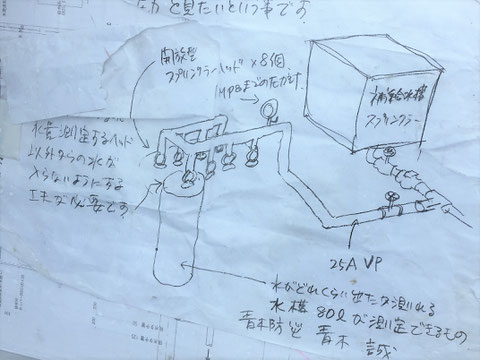 力と見たいという事です
開放型
スプリンクラーヘッド×8個
MPaまでのたかさ
補給水槽
スプリンクラー
水量測定するヘッド
以外からの水が
入らないようにする
工夫が必要です
25A VP
水がどれくらい出たか測れる
水槽 80ℓが測定できるもの
青木防災 青木 誠